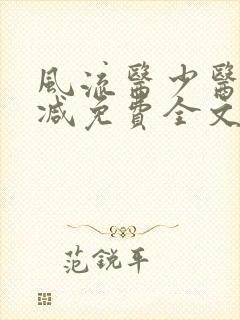 風流醫少醫
減免費全文
范銳平